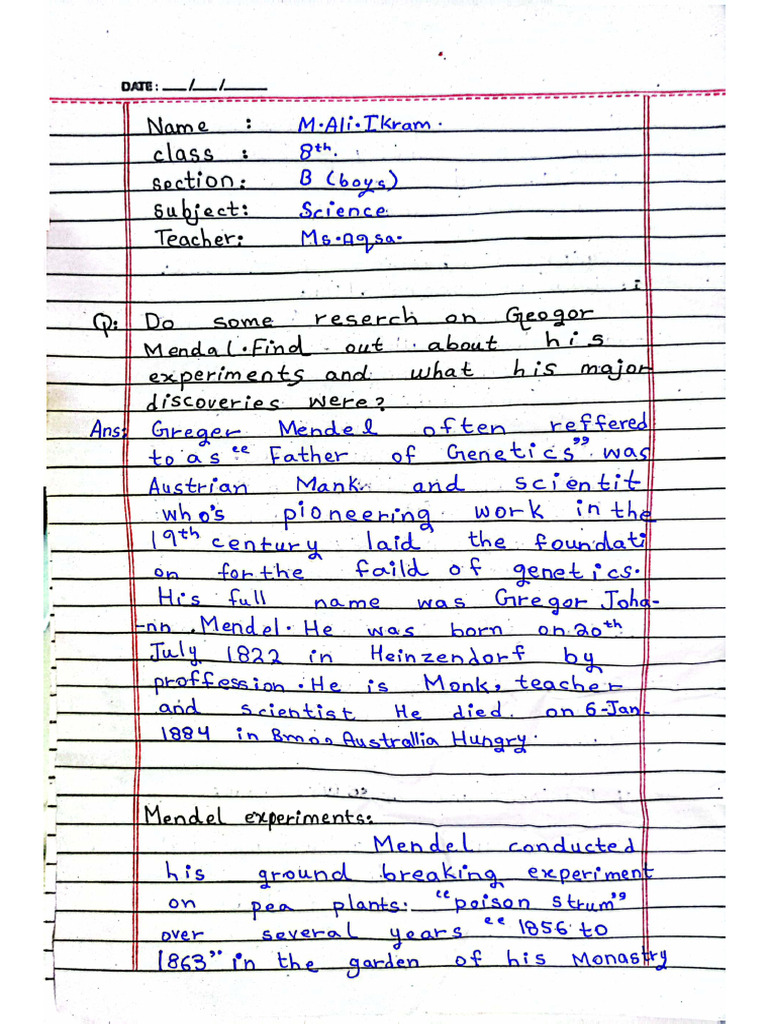 DATE: __/__/____
Name : M.Ali.Ikram.
class : 8th.
section: B (boys)
subject: Science
Teacher: Ms.Aqsa.
Q: Do some reserch on Geogor
Mendal.Find out about his
experiments and what his major
discoveries were?
Ans: Greger Mendel often reffered
to as "Father of Genetics" was
Austrian Mank and scientit
who's pioneering work in the
19th century laid the foundati
on for the faild of genetics.
His full name was Gregor Joha-
-nn .Mendel. He was born on 20th
July 1822 in Heinzendorf by
proffession. He is Monk, teacher
and scientist He died on 6-Jan
1884 in Bmo, Australlia Hungry.
Mendel experiments:
Mendel conducted
his ground breaking experiment
on pea plants: "poison strum"
over several years "1856 to
1863" in the garden of his Monastry